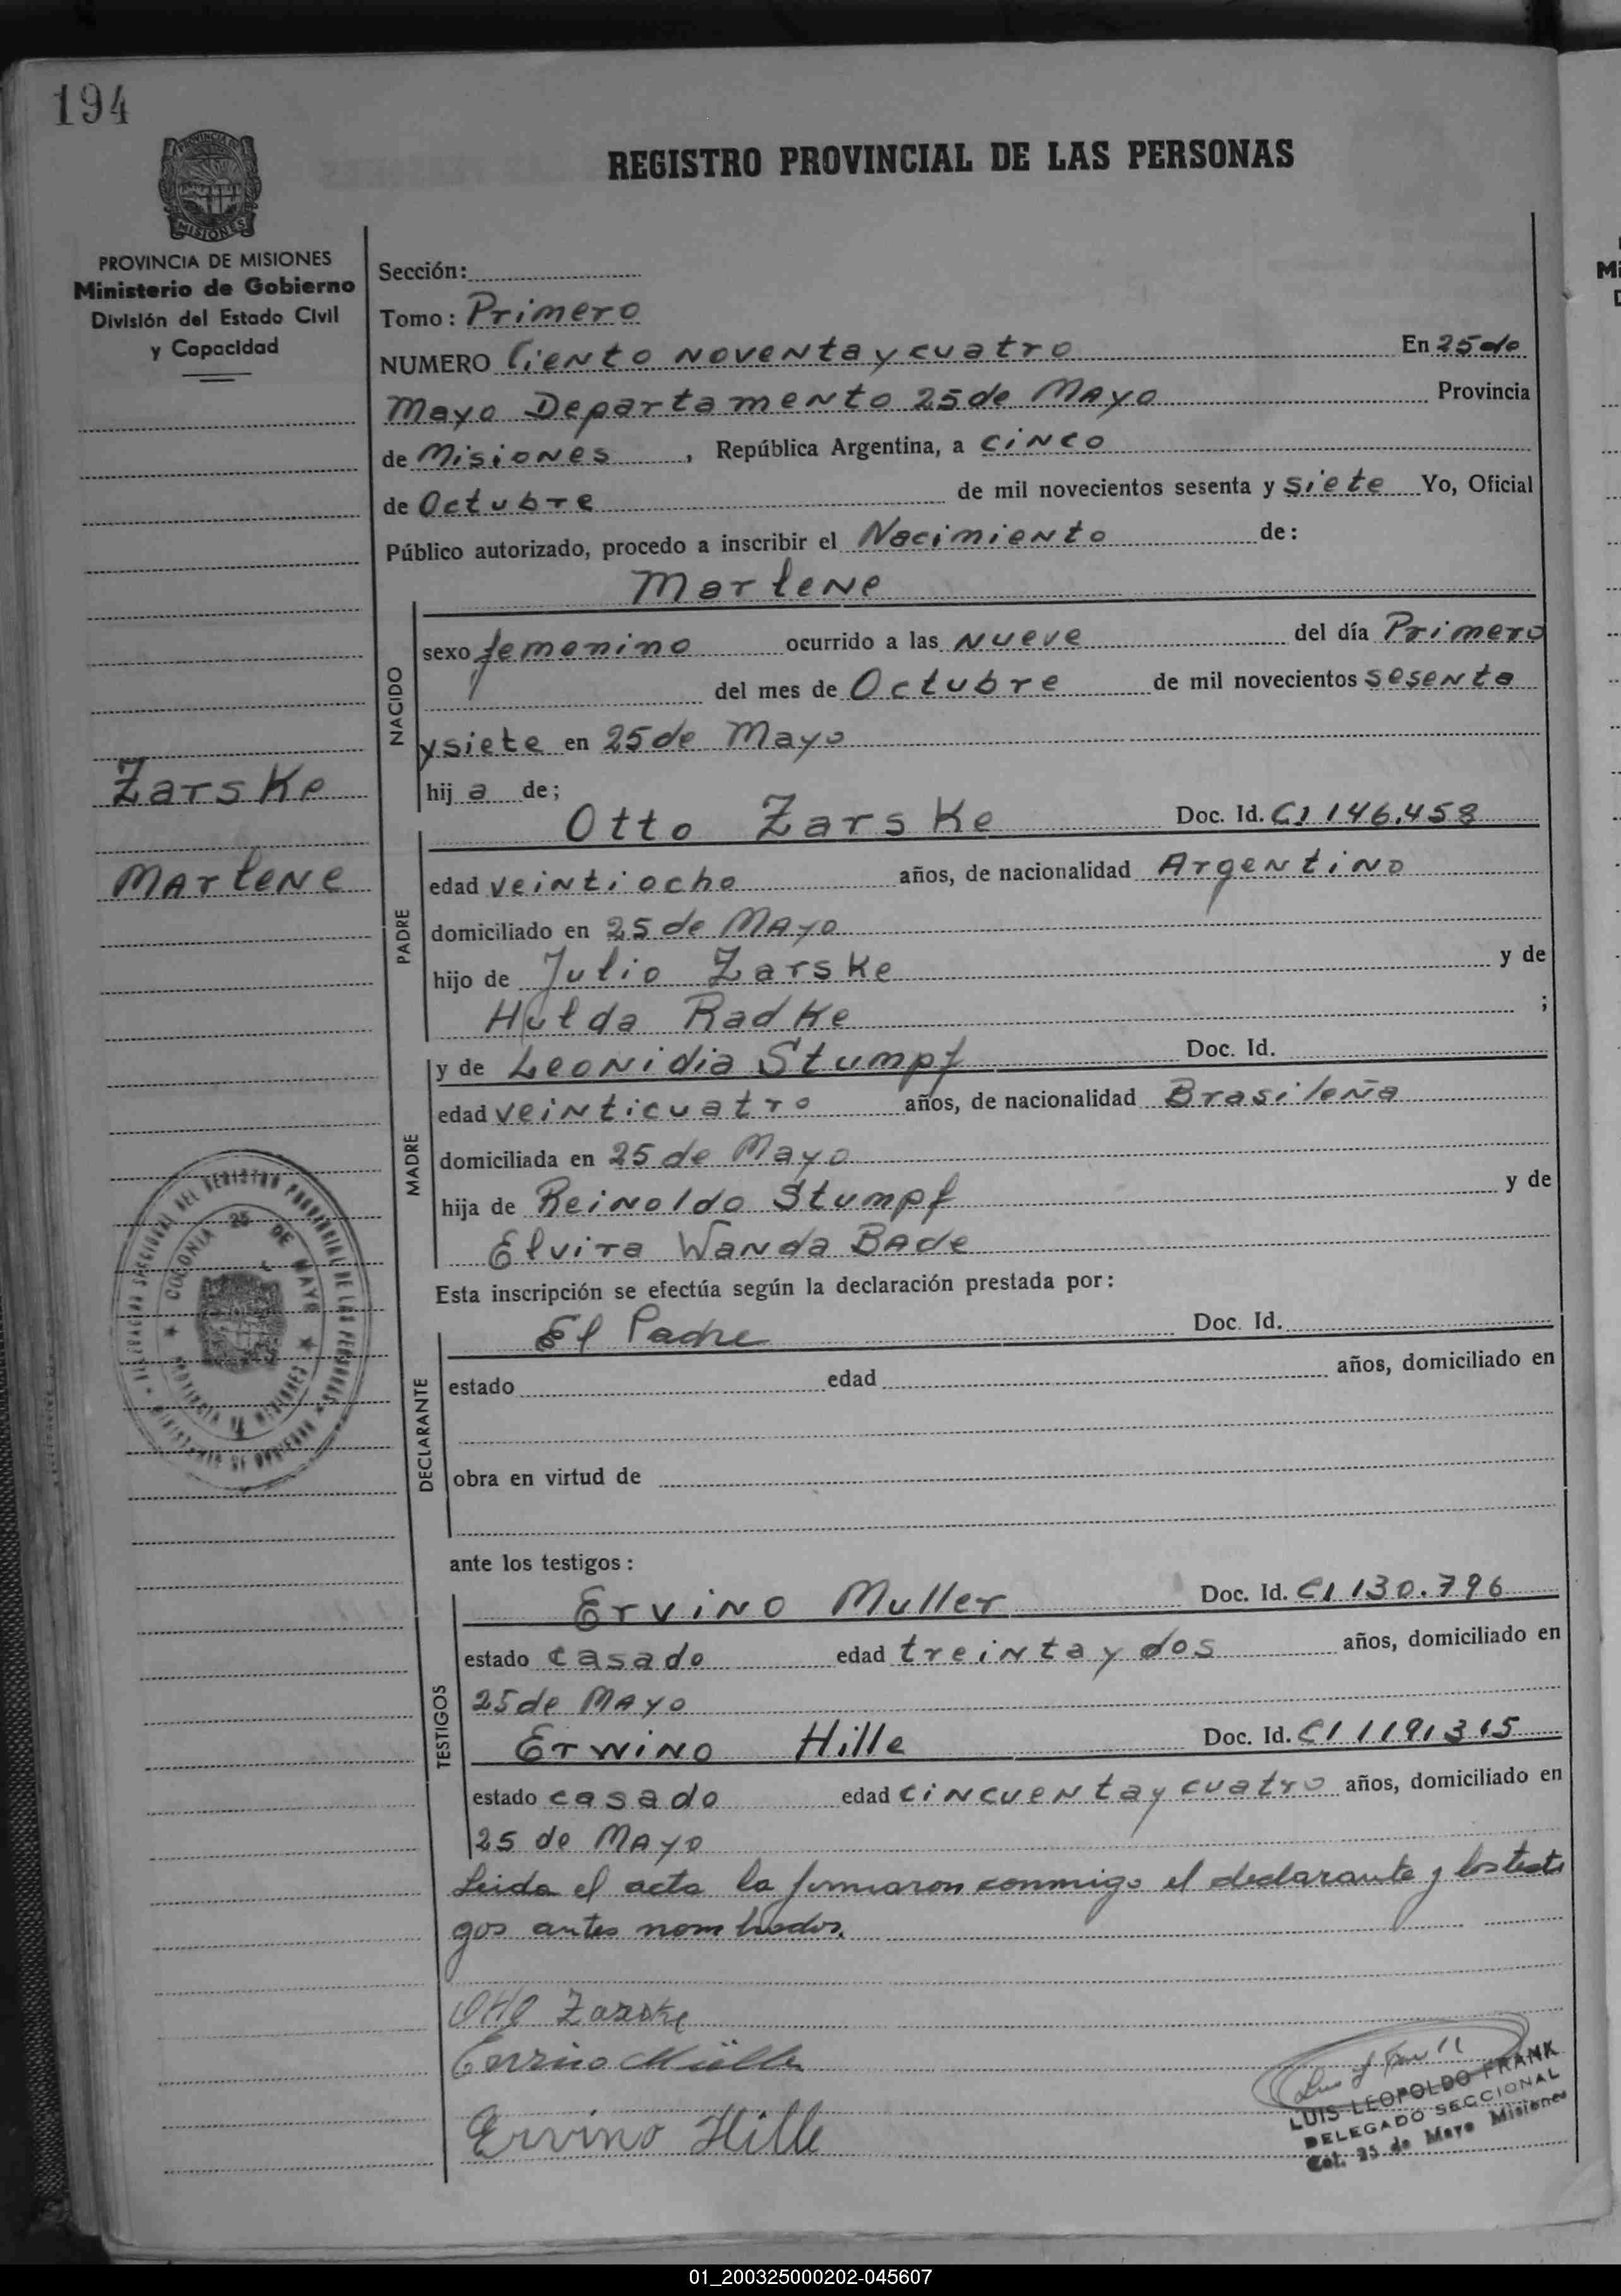 194
REGISTRO PROVINCIAL DE LAS PERSONAS
PROVINCIA DE MISIONES
Ministerio de Gobierno
División del Estado Civil
y Capacidad
Sección:
Tomo: Primero
NUMERO Ciento noventa y cuatro En 25 de
Mayo Departamento 25 de Mayo Provincia
de Misiones, República Argentina, a cinco
de Octubre de mil novecientos sesenta y siete Yo, Oficial
Público autorizado, procedo a inscribir el Nacimiento de:
Marlene
NACIDO
sexo femenino ocurrido a las nueve del día Primero
del mes de Octubre de mil novecientos sesenta
y siete en 25 de Mayo
hija de;
Zarske
Marlene
PADRE
Otto Zarske Doc. Id. CI 146.458
edad veintiocho años, de nacionalidad Argentino
domiciliado en 25 de Mayo
hijo de Julio Zarske y de
Hulda Radke ;
MADRE
y de Leonidia Stumpf Doc. Id.
edad veinticuatro años, de nacionalidad Brasileña
domiciliada en 25 de Mayo
hija de Reinoldo Stumpf y de
Elvira Wanda Bade
COLONIA 25 DE MAYO
PROVINCIA DE MISIONES
Esta inscripción se efectúa según la declaración prestada por:
DECLARANTE
El Padre Doc. Id.
estado edad años, domiciliado en
obra en virtud de
ante los testigos:
TESTIGOS
Ervino Muller Doc. Id. CI 130.796
estado casado edad treinta y dos años, domiciliado en
25 de Mayo
Erwino Hille Doc. Id. CI 1191315
estado casado edad cincuenta y cuatro años, domiciliado en
25 de Mayo
Leida el acta la firmaron conmigo el declarante y los testi
gos antes nombrados.
Otto Zarske
Ervino Müller
Ervino Hille
LUIS LEOPOLDO FRANK
DELEGADO SECCIONAL
Col. 25 de Mayo Misiones
01_200325000202-045607